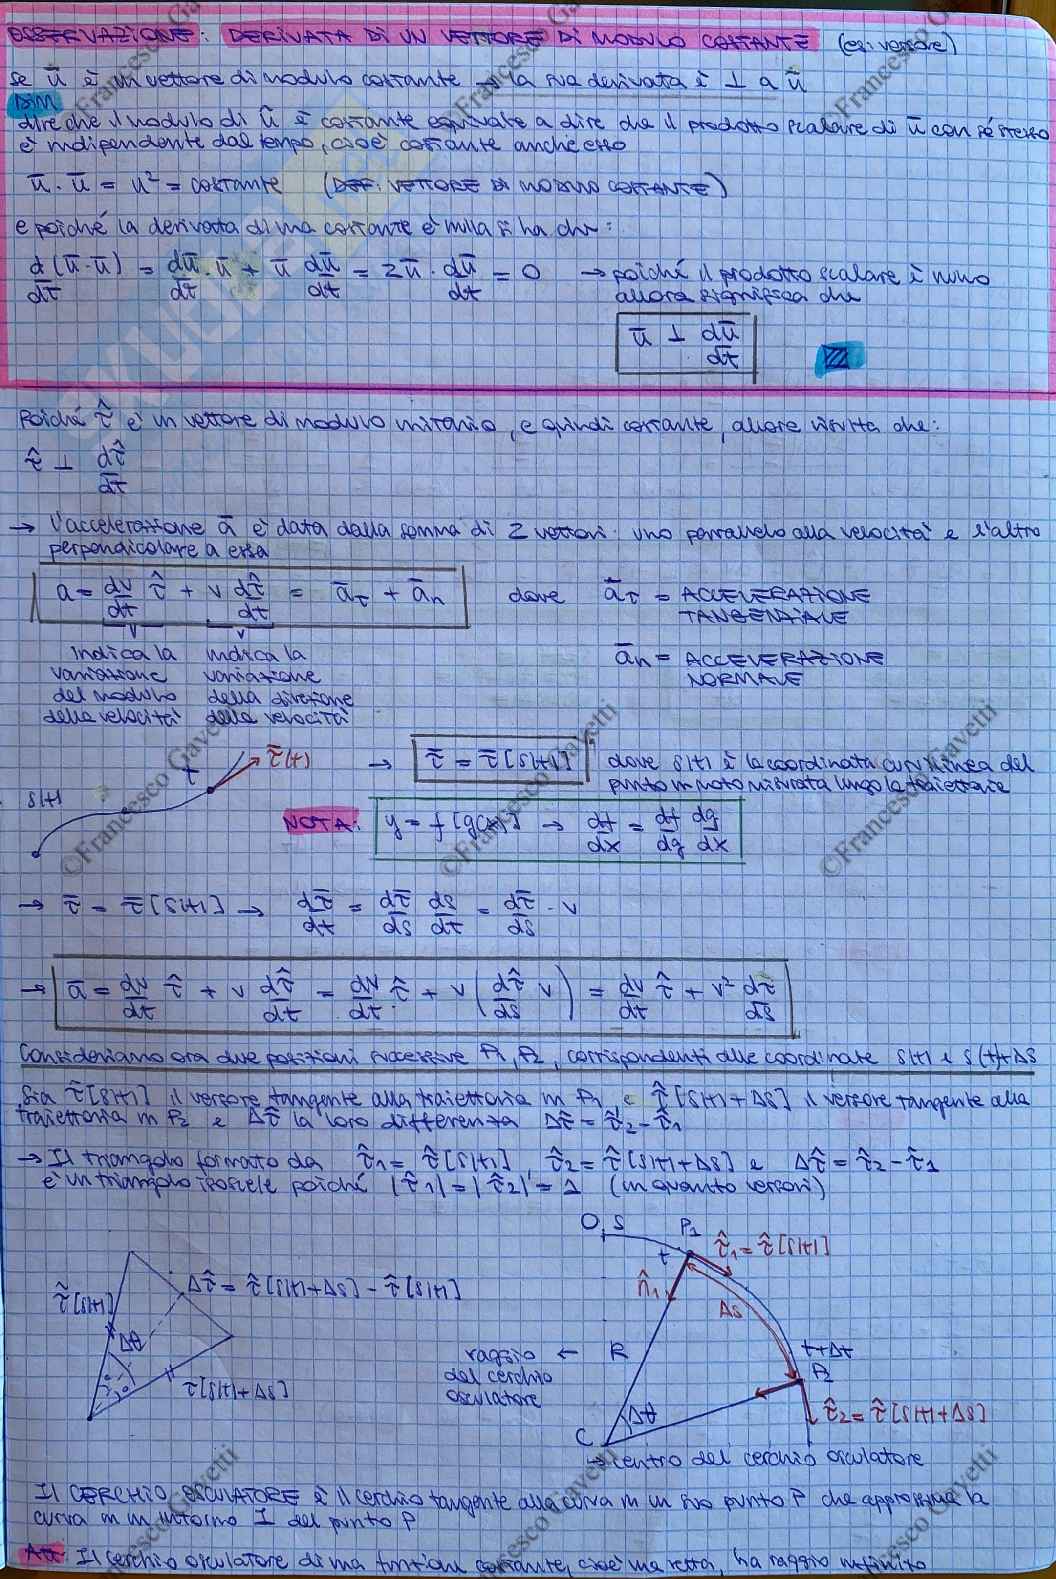 OSSERVAZIONE: DERIVATA DI UN VETTORE DI MODULO COSTANTE (es: versore)
Se ū è un vettore di modulo costante → la sua derivata è ⊥ a ū
DIM
dire che il modulo di ū è costante equivale a dire che il prodotto scalare di ū con sé stesso
è indipendente dal tempo, cioè costante anch'esso
ū · ū = u² = costante (DEF: VETTORE DI MODULO COSTANTE)
e poiché la derivata di una costante è nulla si ha che:
d(ū·ū)/dt = dū/dt · ū + ū dū/dt = 2ū · dū/dt = 0 → poiché il prodotto scalare è nullo
allora significa che
ū ⊥ dū/dt
Poiché τ̂ è un vettore di modulo unitario, e quindi costante, allora risulta che:
τ̂ ⊥ dτ̂/dt
→ l'accelerazione ā è data dalla somma di 2 vettori: uno parallelo alla velocità e l'altro
perpendicolare a essa
a = dv/dt τ̂ + v dτ̂/dt = āτ + ān dove āτ = ACCELERAZIONE
TANGENZIALE
indica la variazione del modulo della velocità
indica la variazione della direzione della velocità
ān = ACCELERAZIONE
NORMALE
s(t)
t
τ̄(t)
→ τ̄ = τ̄[s(t)] dove s(t) è la coordinata curvilinea del
punto in moto misurata lungo la traiettoria
NOTA: y = f[g(x)] → df/dx = df/dg dg/dx
→ τ̄ = τ̄[s(t)] → dτ̄/dt = dτ̄/ds ds/dt = dτ̄/ds · v
→ ā = dv/dt τ̂ + v dτ̂/dt = dv/dt τ̂ + v(dτ̂/ds v) = dv/dt τ̂ + v² dτ̂/ds
Consideriamo ora due posizioni successive P1, P2, corrispondenti alle coordinate s(t) e s(t)+Δs
Sia τ̂[s(t)] il versore tangente alla traiettoria in P1 e τ̂[s(t)+Δs] il versore tangente alla
traiettoria in P2 e Δτ̂ la loro differenza Δτ̂ = τ̂2 - τ̂1
→ Il triangolo formato da τ̂1 = τ̂[s(t)], τ̂2 = τ̂[s(t)+Δs] e Δτ̂ = τ̂2 - τ̂1
è un triangolo isoscele poiché |τ̂1| = |τ̂2| = 1 (in quanto versori)
τ̂[s(t)]
Δτ̂ = τ̂[s(t)+Δs] - τ̂[s(t)]
Δθ
τ[s(t)+Δs]
O, S
P1
t
τ̂1 = τ̂[s(t)]
n̂1
Δs
raggio ← R
del cerchio
osculatore
t+Δt
P2
τ̂2 = τ̂[s(t)+Δs]
Δθ
C
→ centro del cerchio osculatore
Il CERCHIO OSCULATORE è il cerchio tangente alla curva in un suo punto P che approssima la
curva in un intorno I del punto P
Att: Il cerchio osculatore di una funzione costante, cioè una retta, ha raggio infinito
©Francesco Gavetti
SKUOLA